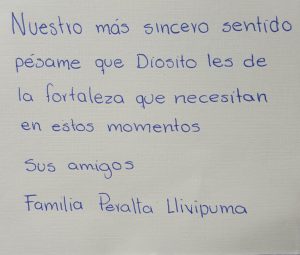 Nuestro más sincero sentido
pésame que Diosito les de
la fortaleza que necesitan
en estos momentos
Sus amigos
Familia Peralta Llivipuma